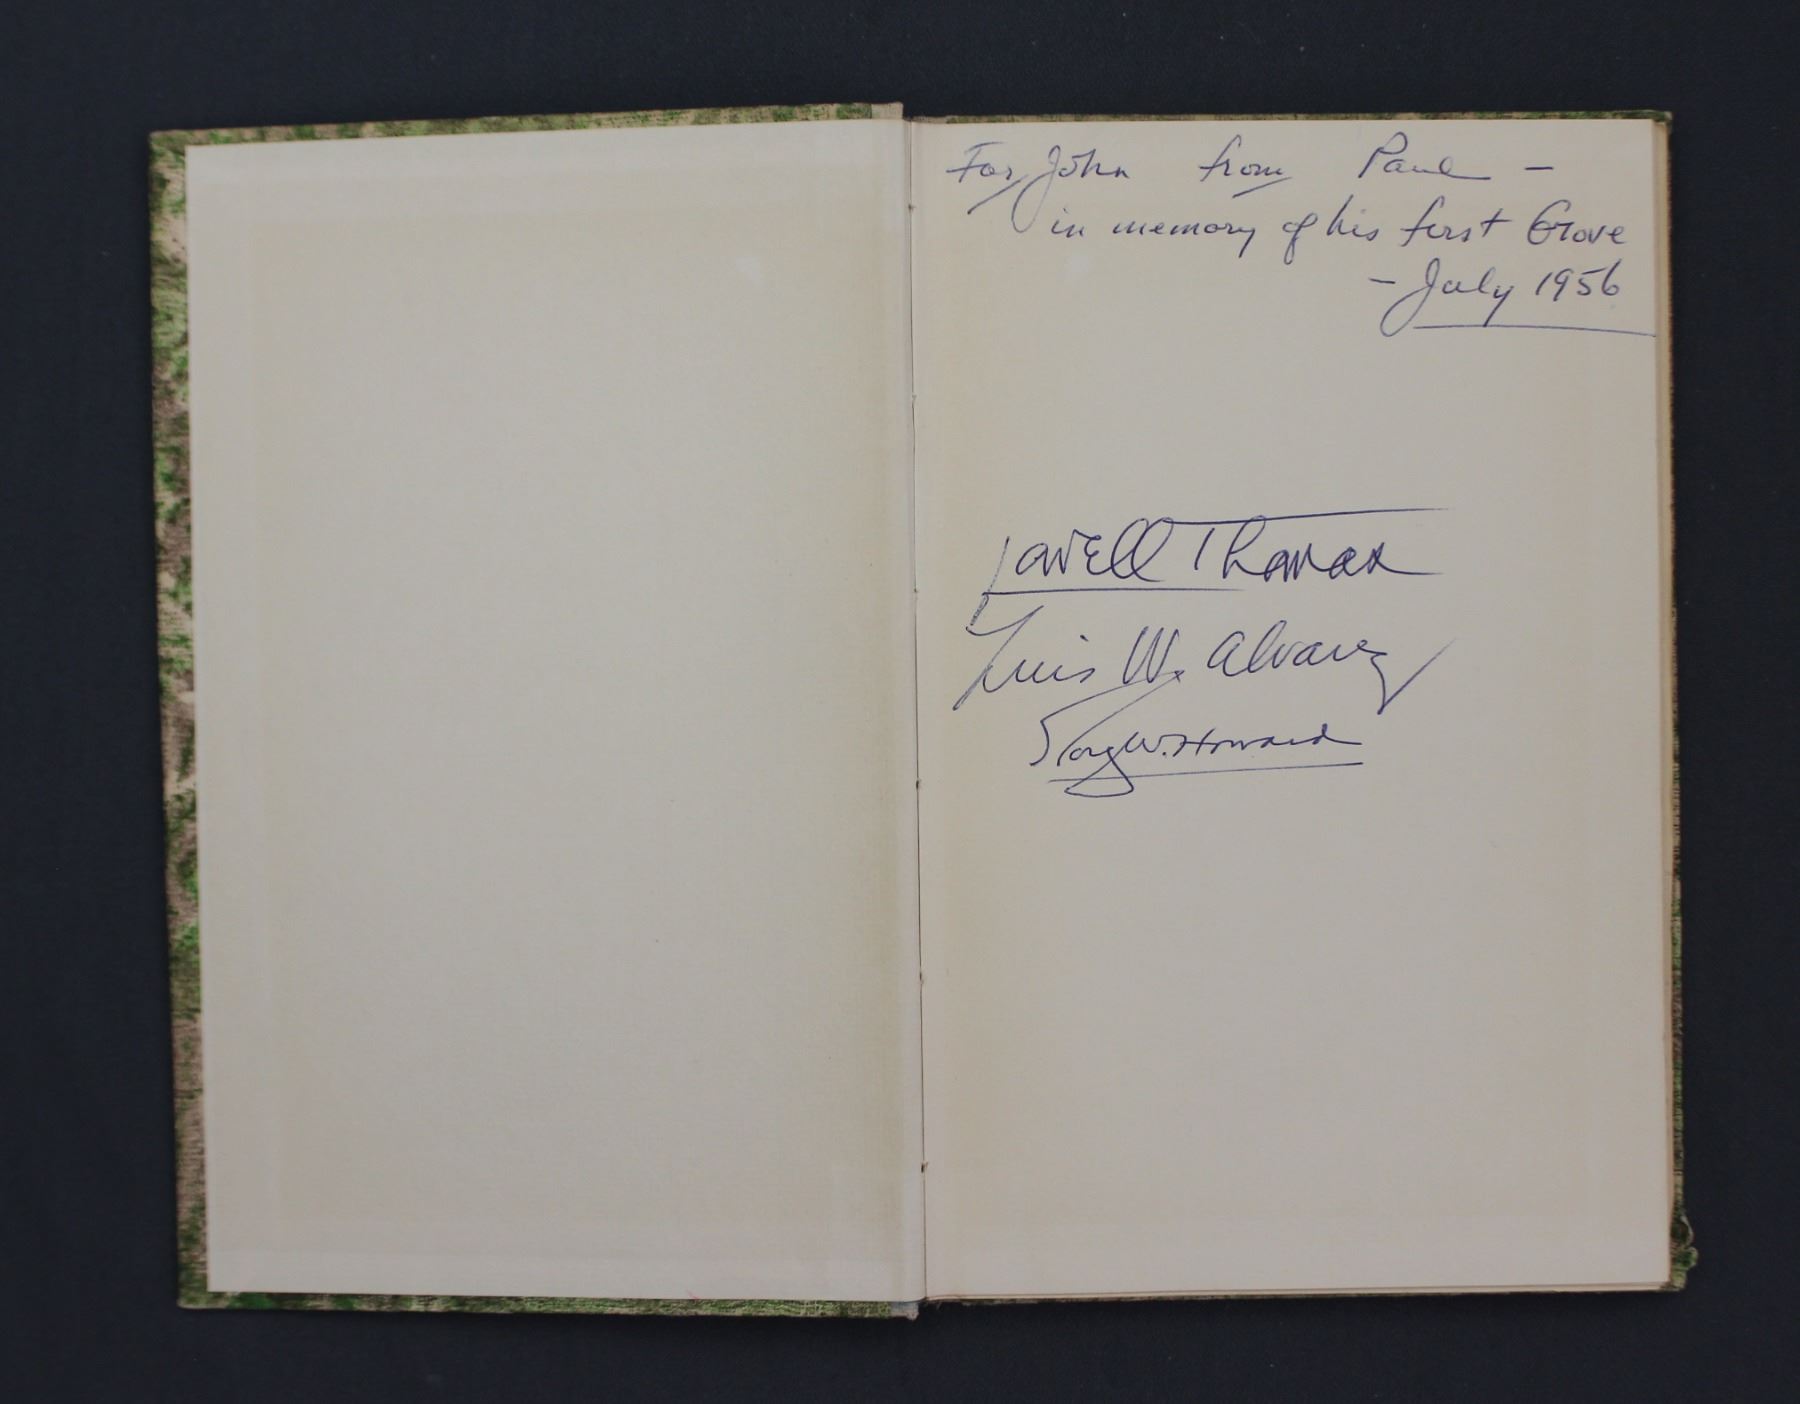 For John from Paul –
in memory of his first Grove
– July 1956
Lowell Thomas
Luis W. Alvarez
Roy W. Howard